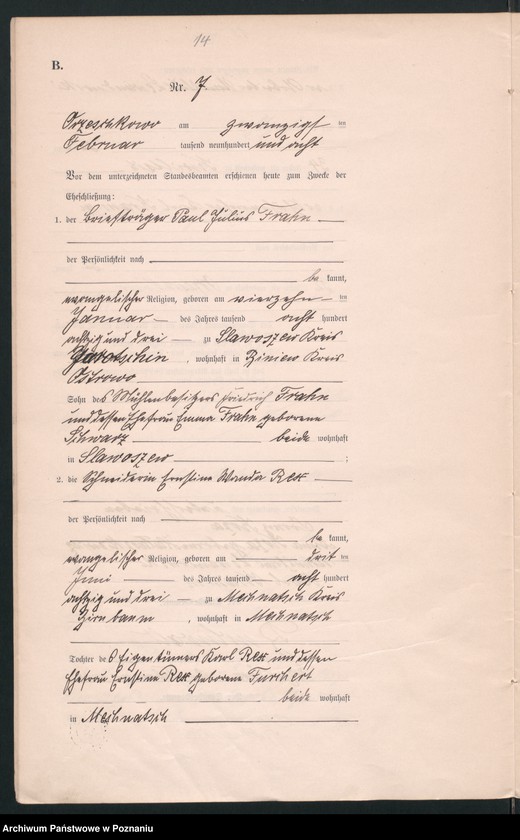 14
B.
Nr. 7.
Orzeschkowo am zwanzigsten
Februar tausend neunhundert und acht
Vor dem unterzeichneten Standesbeamten erschienen heute zum Zwecke der
Eheschließung:
1. der Briefträger Paul Julius Frahn
der Persönlichkeit nach
be kannt,
evangelischer Religion, geboren am vierzehn ten
Januar des Jahres tausend acht hundert
achtzig und drei zu Slawoszew Kreis
Jarotschin, wohnhaft in Biniew Kreis
Ostrowo
Sohn des Mühlenbesitzers Friedrich Frahn
und dessen Ehefrau Emma Frahn geborene
Schwarz beide wohnhaft
in Slawoszew ;
2. die Schneiderin Ernstine Wanda Rex
der Persönlichkeit nach
be kannt,
evangelischer Religion, geboren am drit ten
Juni des Jahres tausend acht hundert
achtzig und drei zu Mechnatsch Kreis
Birnbaum, wohnhaft in Mechnatsch
Tochter des Eigentümers Karl Rex und dessen
Ehefrau Ernstine Rex geborene Furchert
beide wohnhaft
in Mechnatsch
Archiwum Państwowe w Poznaniu